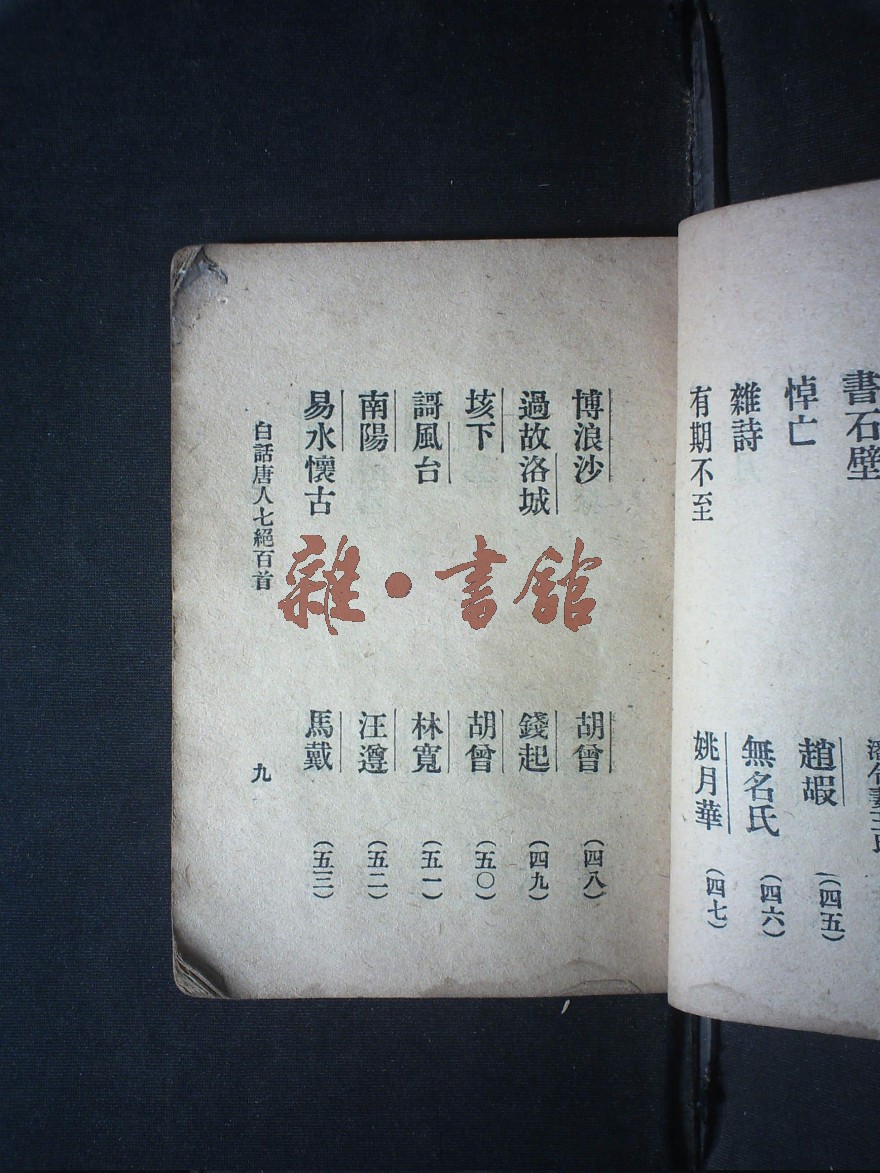 書石壁
悼亡 趙嘏 (四五)
雜詩 無名氏 (四六)
有期不至 姚月華 (四七)
博浪沙 胡曾 (四八)
過故洛城 錢起 (四九)
垓下 胡曾 (五〇)
謌風台 林寬 (五一)
南陽 汪遵 (五二)
易水懷古 馬戴 (五三)
白話唐人七絕百首 九
雜·書館